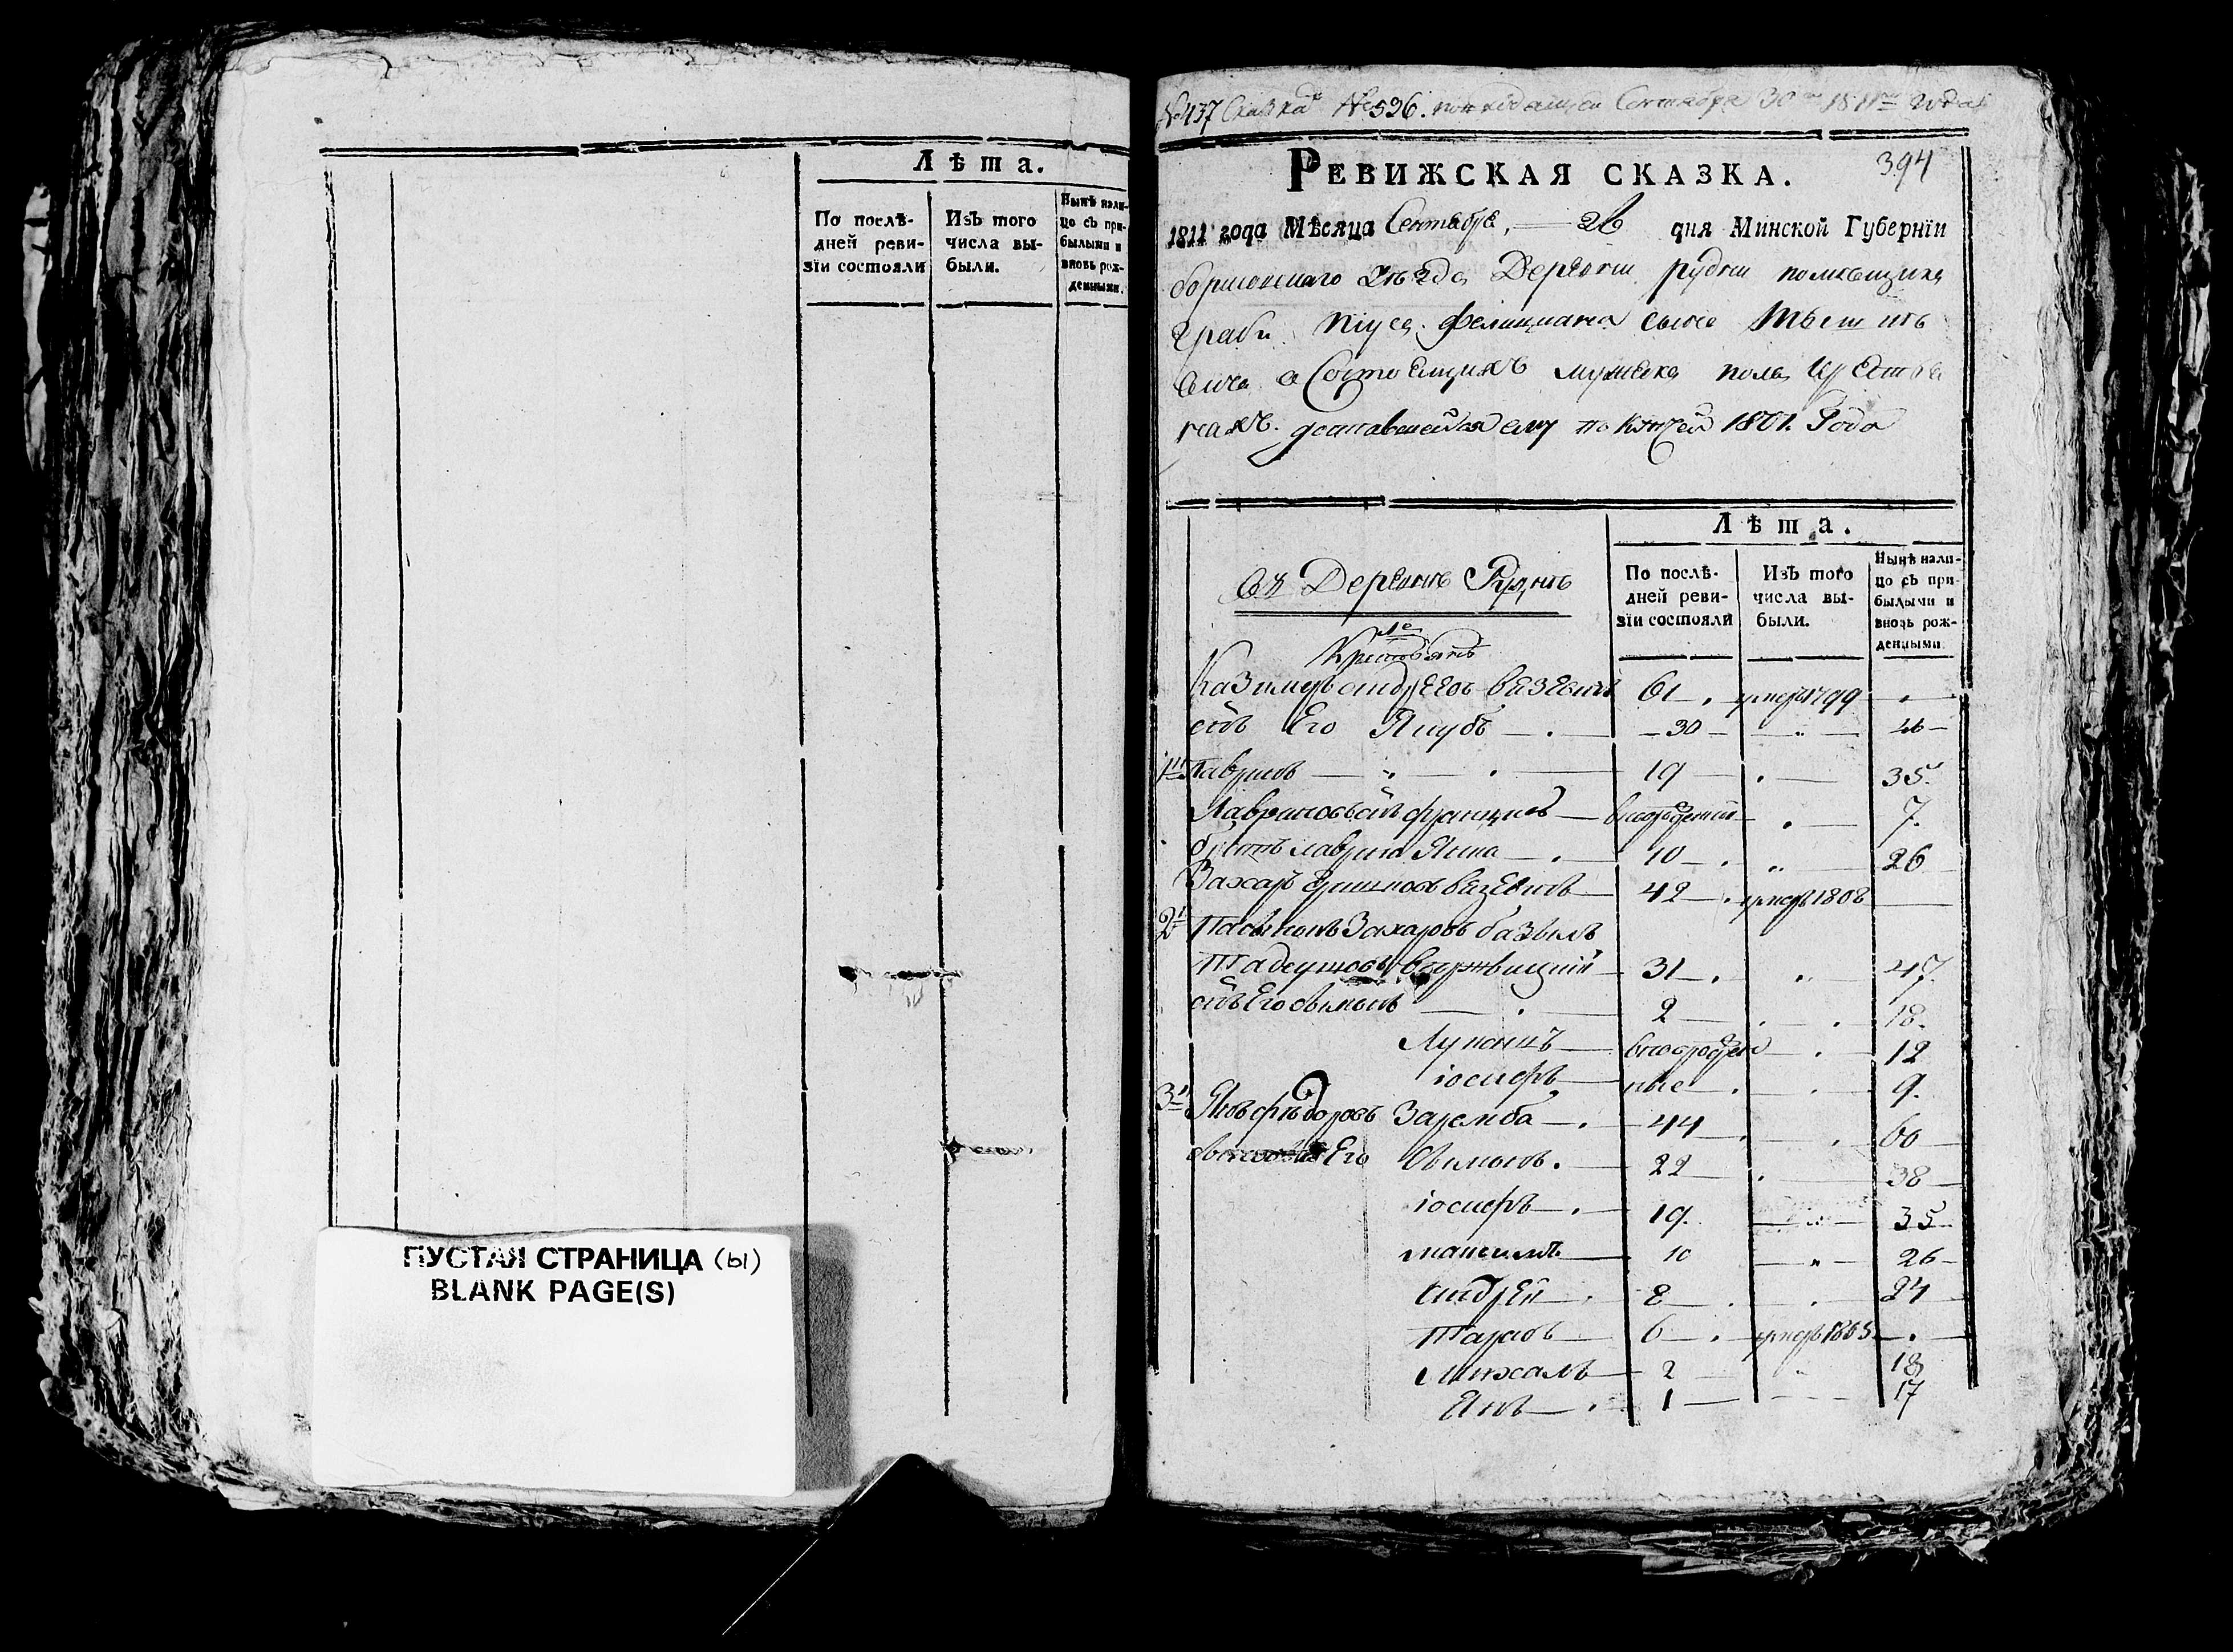 Лѣта.
По послѣ-
дней реви-
зїи состояли
Изъ того
числа вы-
были.
Нынѣ нали-
цо съ при-
былыми и
вновь рож-
денными.
ПУСТАЯ СТРАНИЦА (ы)
BLANK PAGE(S)
№437 Сказка № 526. Сентября 30 1811 года
394
РЕВИЖСКАЯ СКАЗКА.
1811 года Мѣсяца Сентября, 26 дня Минской Губернїи
борисовскаго Деревни рудни помѣщика
графа Піуса Фелициана сына Тышкѣ
вича о Состоящихъ мужеска пола крестья
нахъ. доставшейся ему 1801. Года
Лѣта.
въ Деревнѣ Руднѣ
По послѣ-
дней реви-
зїи состояли
Изъ того
числа вы-
были.
Нынѣ нали-
цо съ при-
былыми и
вновь рож-
денными
Крестьянъ
Казимеръ андреевъ 61 умеръ 1799
сынъ Его Якубъ 30 46
1й Лавринъ 19 35.
Лавриновъ сынъ францишекъ 7.
братъ лаврина Янка 10 26
Захаръ 42 умеръ 1808
2й Пасынокъ Захаровъ базыль
Тадеушовъ 31 47
сынъ Его сымонъ 2 18.
Лукашъ новорожден 12
іосифъ ные 9.
3й Яновъ Заремба 44 60
Его Сымонъ. 22 38
іосифъ 19. 35
максимъ 10 26
андрей 8 24
Тарасъ 6 умеръ 1805
Михалъ 2 18
Янъ 1 17